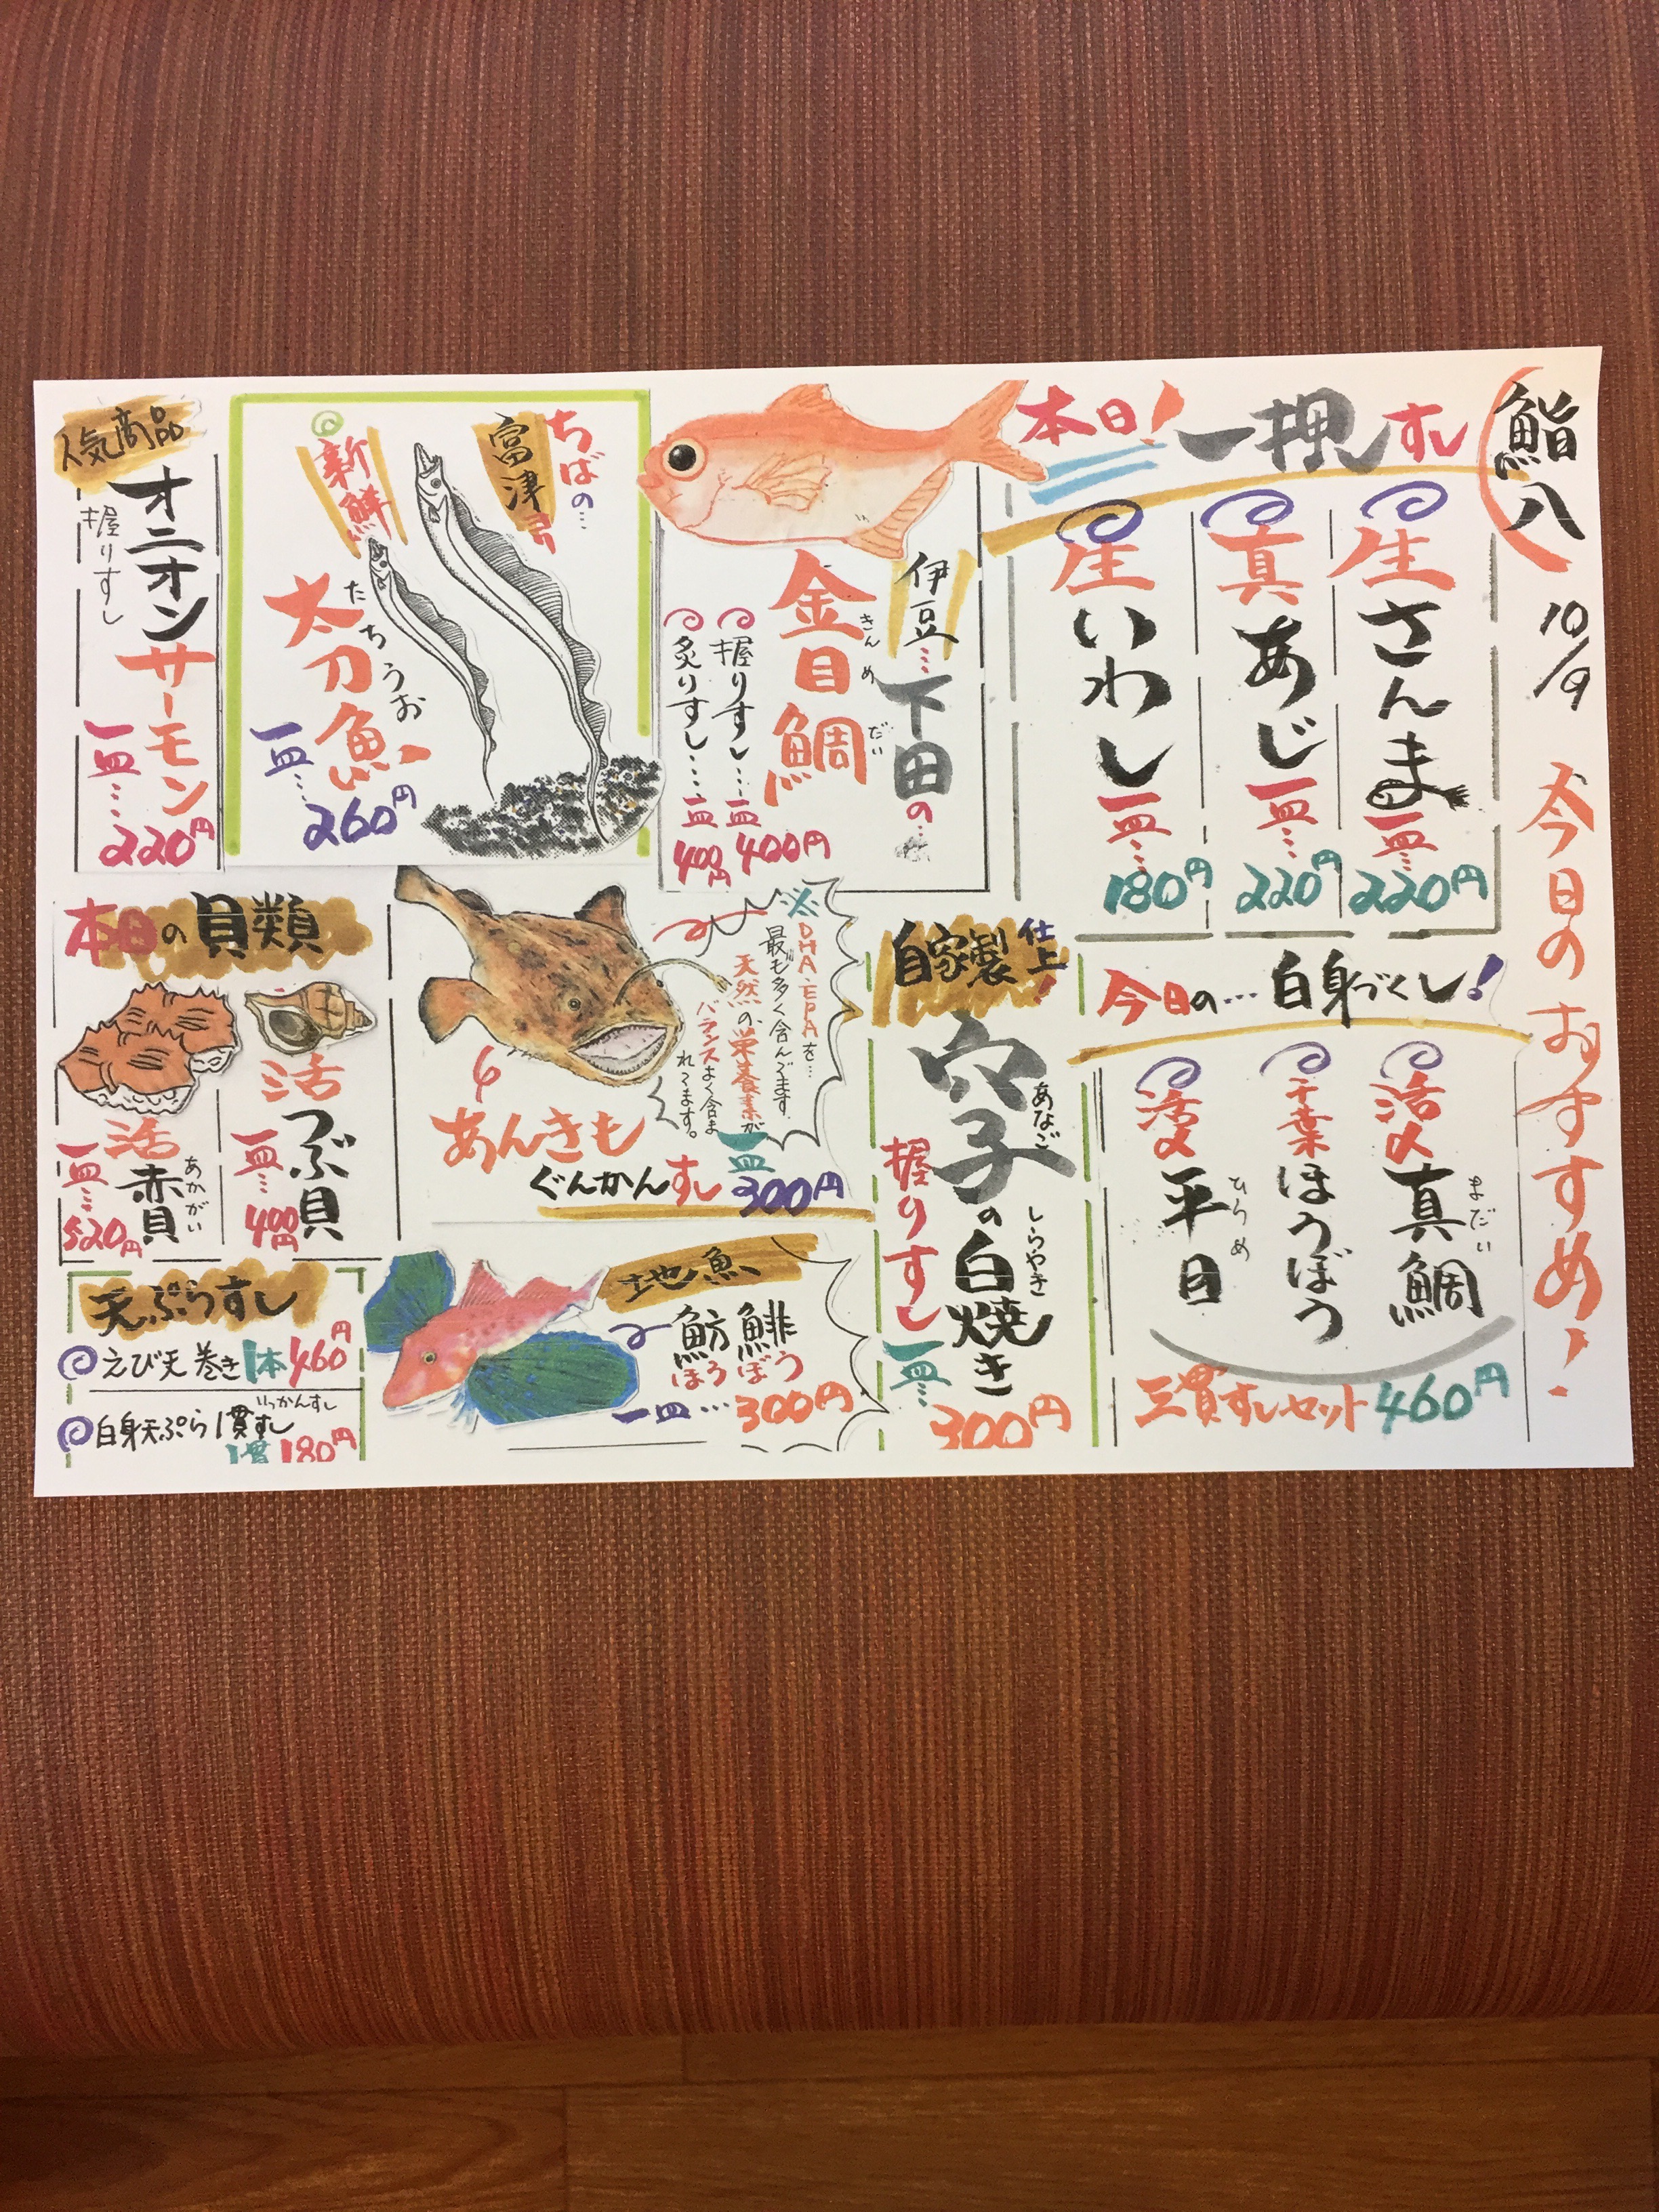 鮨八
10/9
今日のおすすめ!
本日!一押しすし
生さんま
一皿…220円
真あじ
一皿…220円
生いわし
一皿…180円
今日の…白身づくし!
活〆真鯛
まだい
千葉ほうぼう
活〆平目
ひらめ
三貫すしセット460円
伊豆…下田の…
金目鯛
きんめだい
握りすし…一皿400円
炙りすし…一皿400円
自家製仕上!
穴子の白焼き
あなご
しらやき
握りすし
一皿…300円
ちばの…
富津
新鮮
太刀魚
たちうお
一皿…260円
人気商品
オニオンサーモン
握りすし
一皿…220円
※DHA・EPAを…
最も多く含んでます。
天然の栄養素が
バランスよく含ま
れてます。
あんきも
ぐんかんすし
一皿300円
地魚
魴鯡
ほうぼう
一皿…300円
本日の貝類
活つぶ貝
一皿…400円
活赤貝
あかがい
一皿…520円
天ぷらすし
えび天巻き1本460円
白身天ぷら1貫すし
いっかんすし
1貫180円